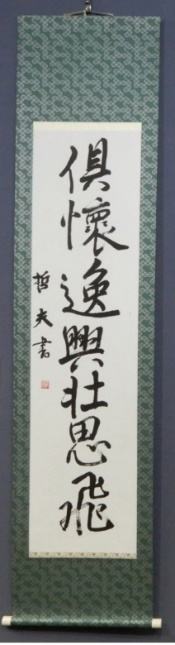 俱懷逸興壯思飛
哲夫書